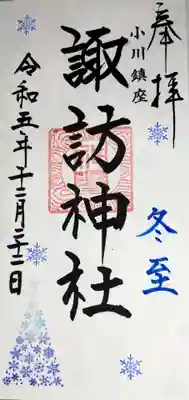 奉拝
冬至
小川鎮座
諏訪神社
令和五年十二月二十二日